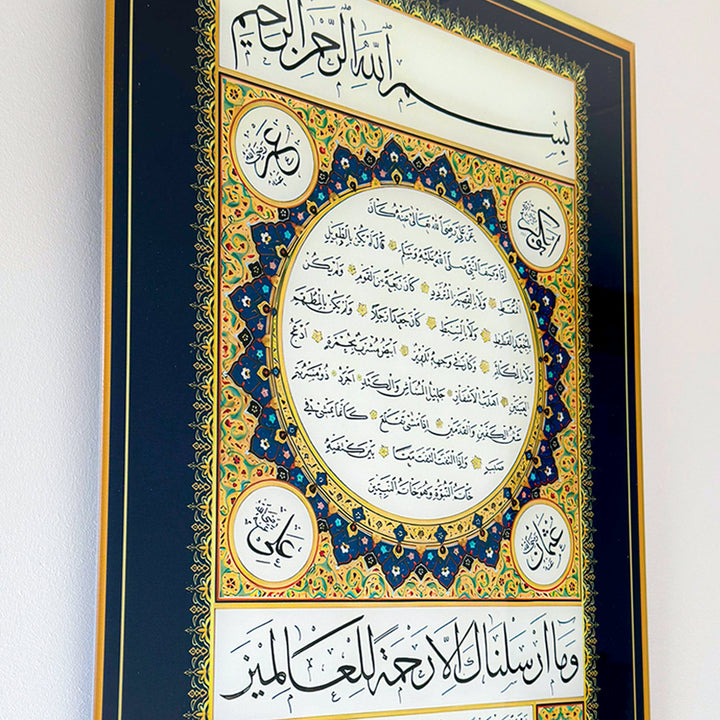 بسم الله الرحمن الرحيم
ابوبكر رضي الله عنه
عمر رضي الله عنه
عن علي رضي الله تعالى عنه كان
اذا وصف النبي صلى الله عليه وسلم قال لم يكن بالطويل
الممغط ولا القصير المتردد كان ربعة من القوم ولم يكن
بالجعد القطط ولا بالسبط كان جعدا رجلا ولم يكن بالمطهم
ولا بالمكلثم وكان في وجهه تدوير ابيض مشرب بحمرة ادعج
العينين اهدب الاشفار جليل المشاش والكتد اجرد ذو مسربة
شثن الكفين والقدمين اذا مشى تقلع كانما يمشي في
صبب واذا التفت التفت معا بين كتفيه
خاتم النبوة وهو خاتم النبيين
عثمان رضي الله عنه
علي رضي الله عنه
وما ارسلناك الا رحمة للعالمين